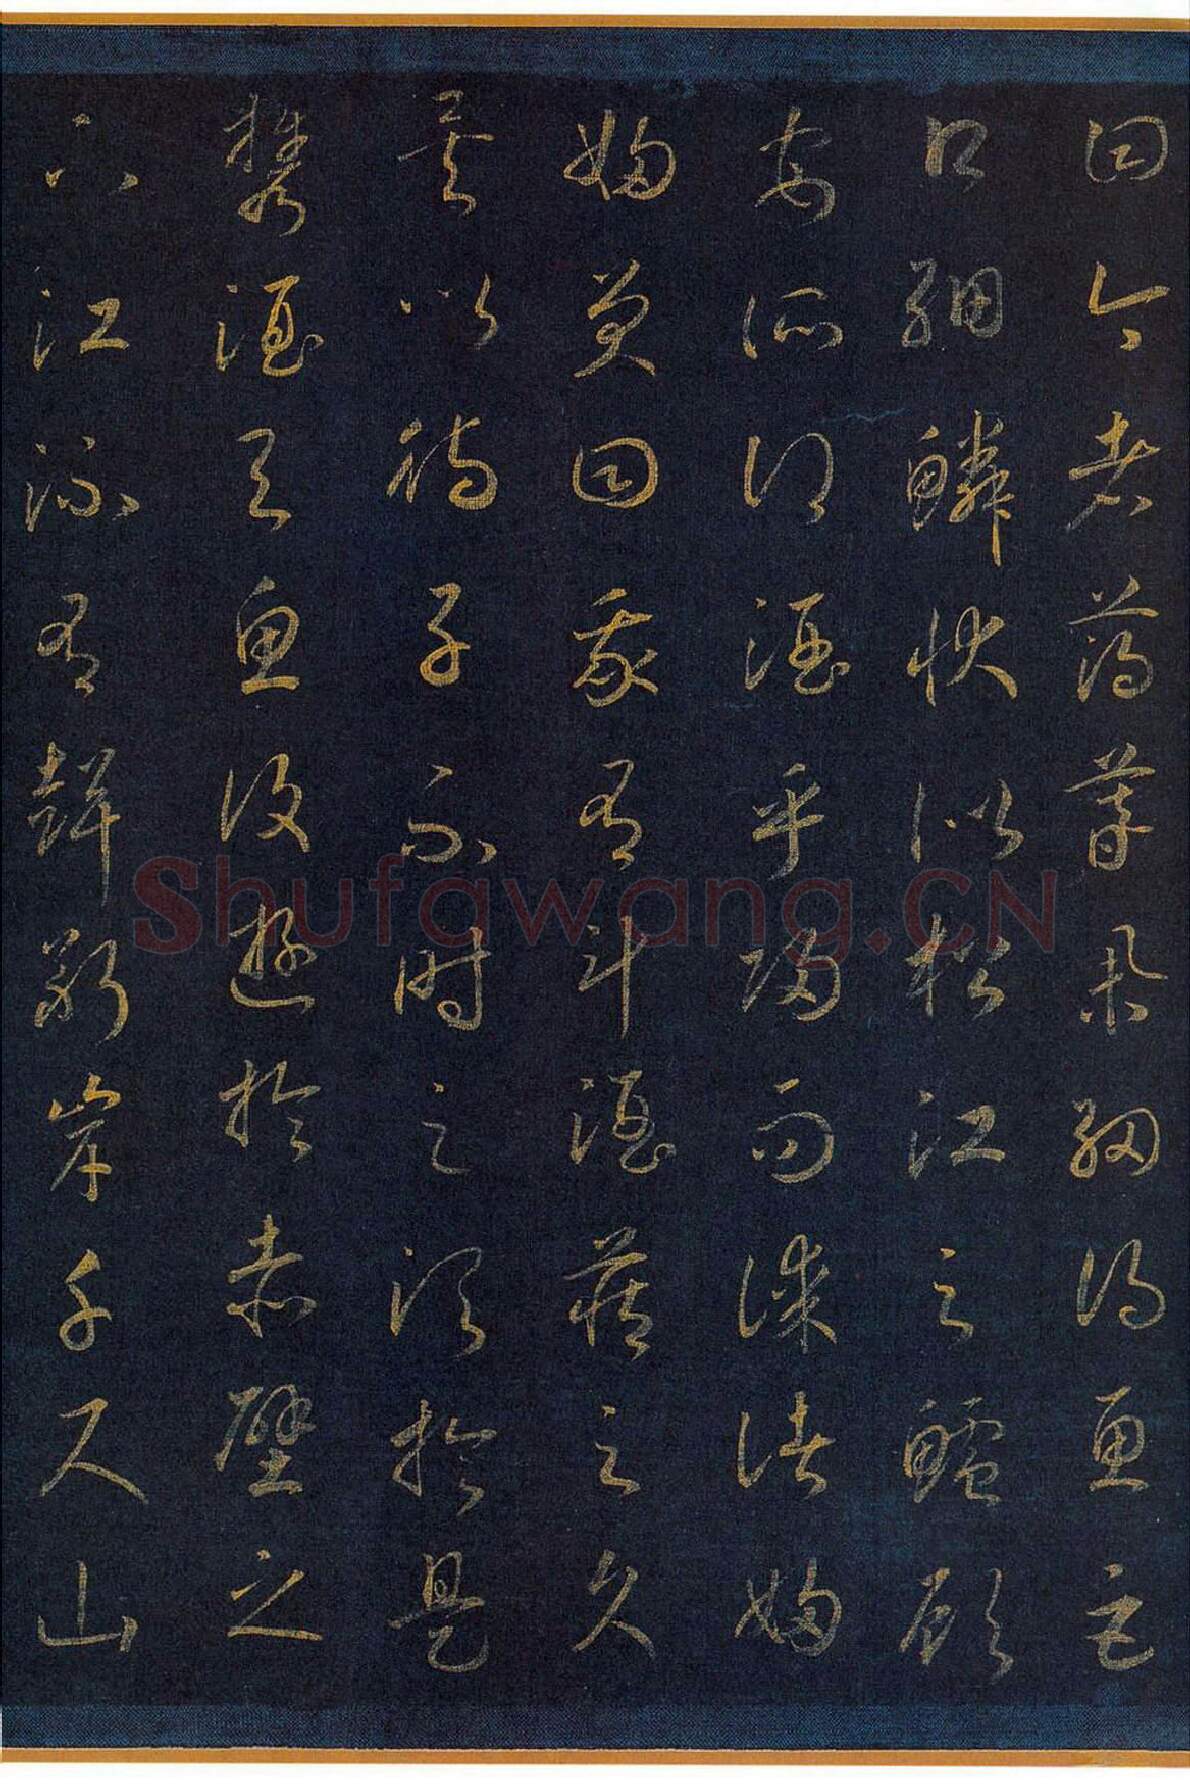 曰今者薄暮舉網得魚巨
口細鱗狀似松江之鱸顧
安所得酒乎歸而謀諸婦
婦曰我有斗酒藏之久
矣以待子不時之須於是
攜酒與魚復遊於赤壁之
下江流有聲斷岸千尺山
Shufawang.CN